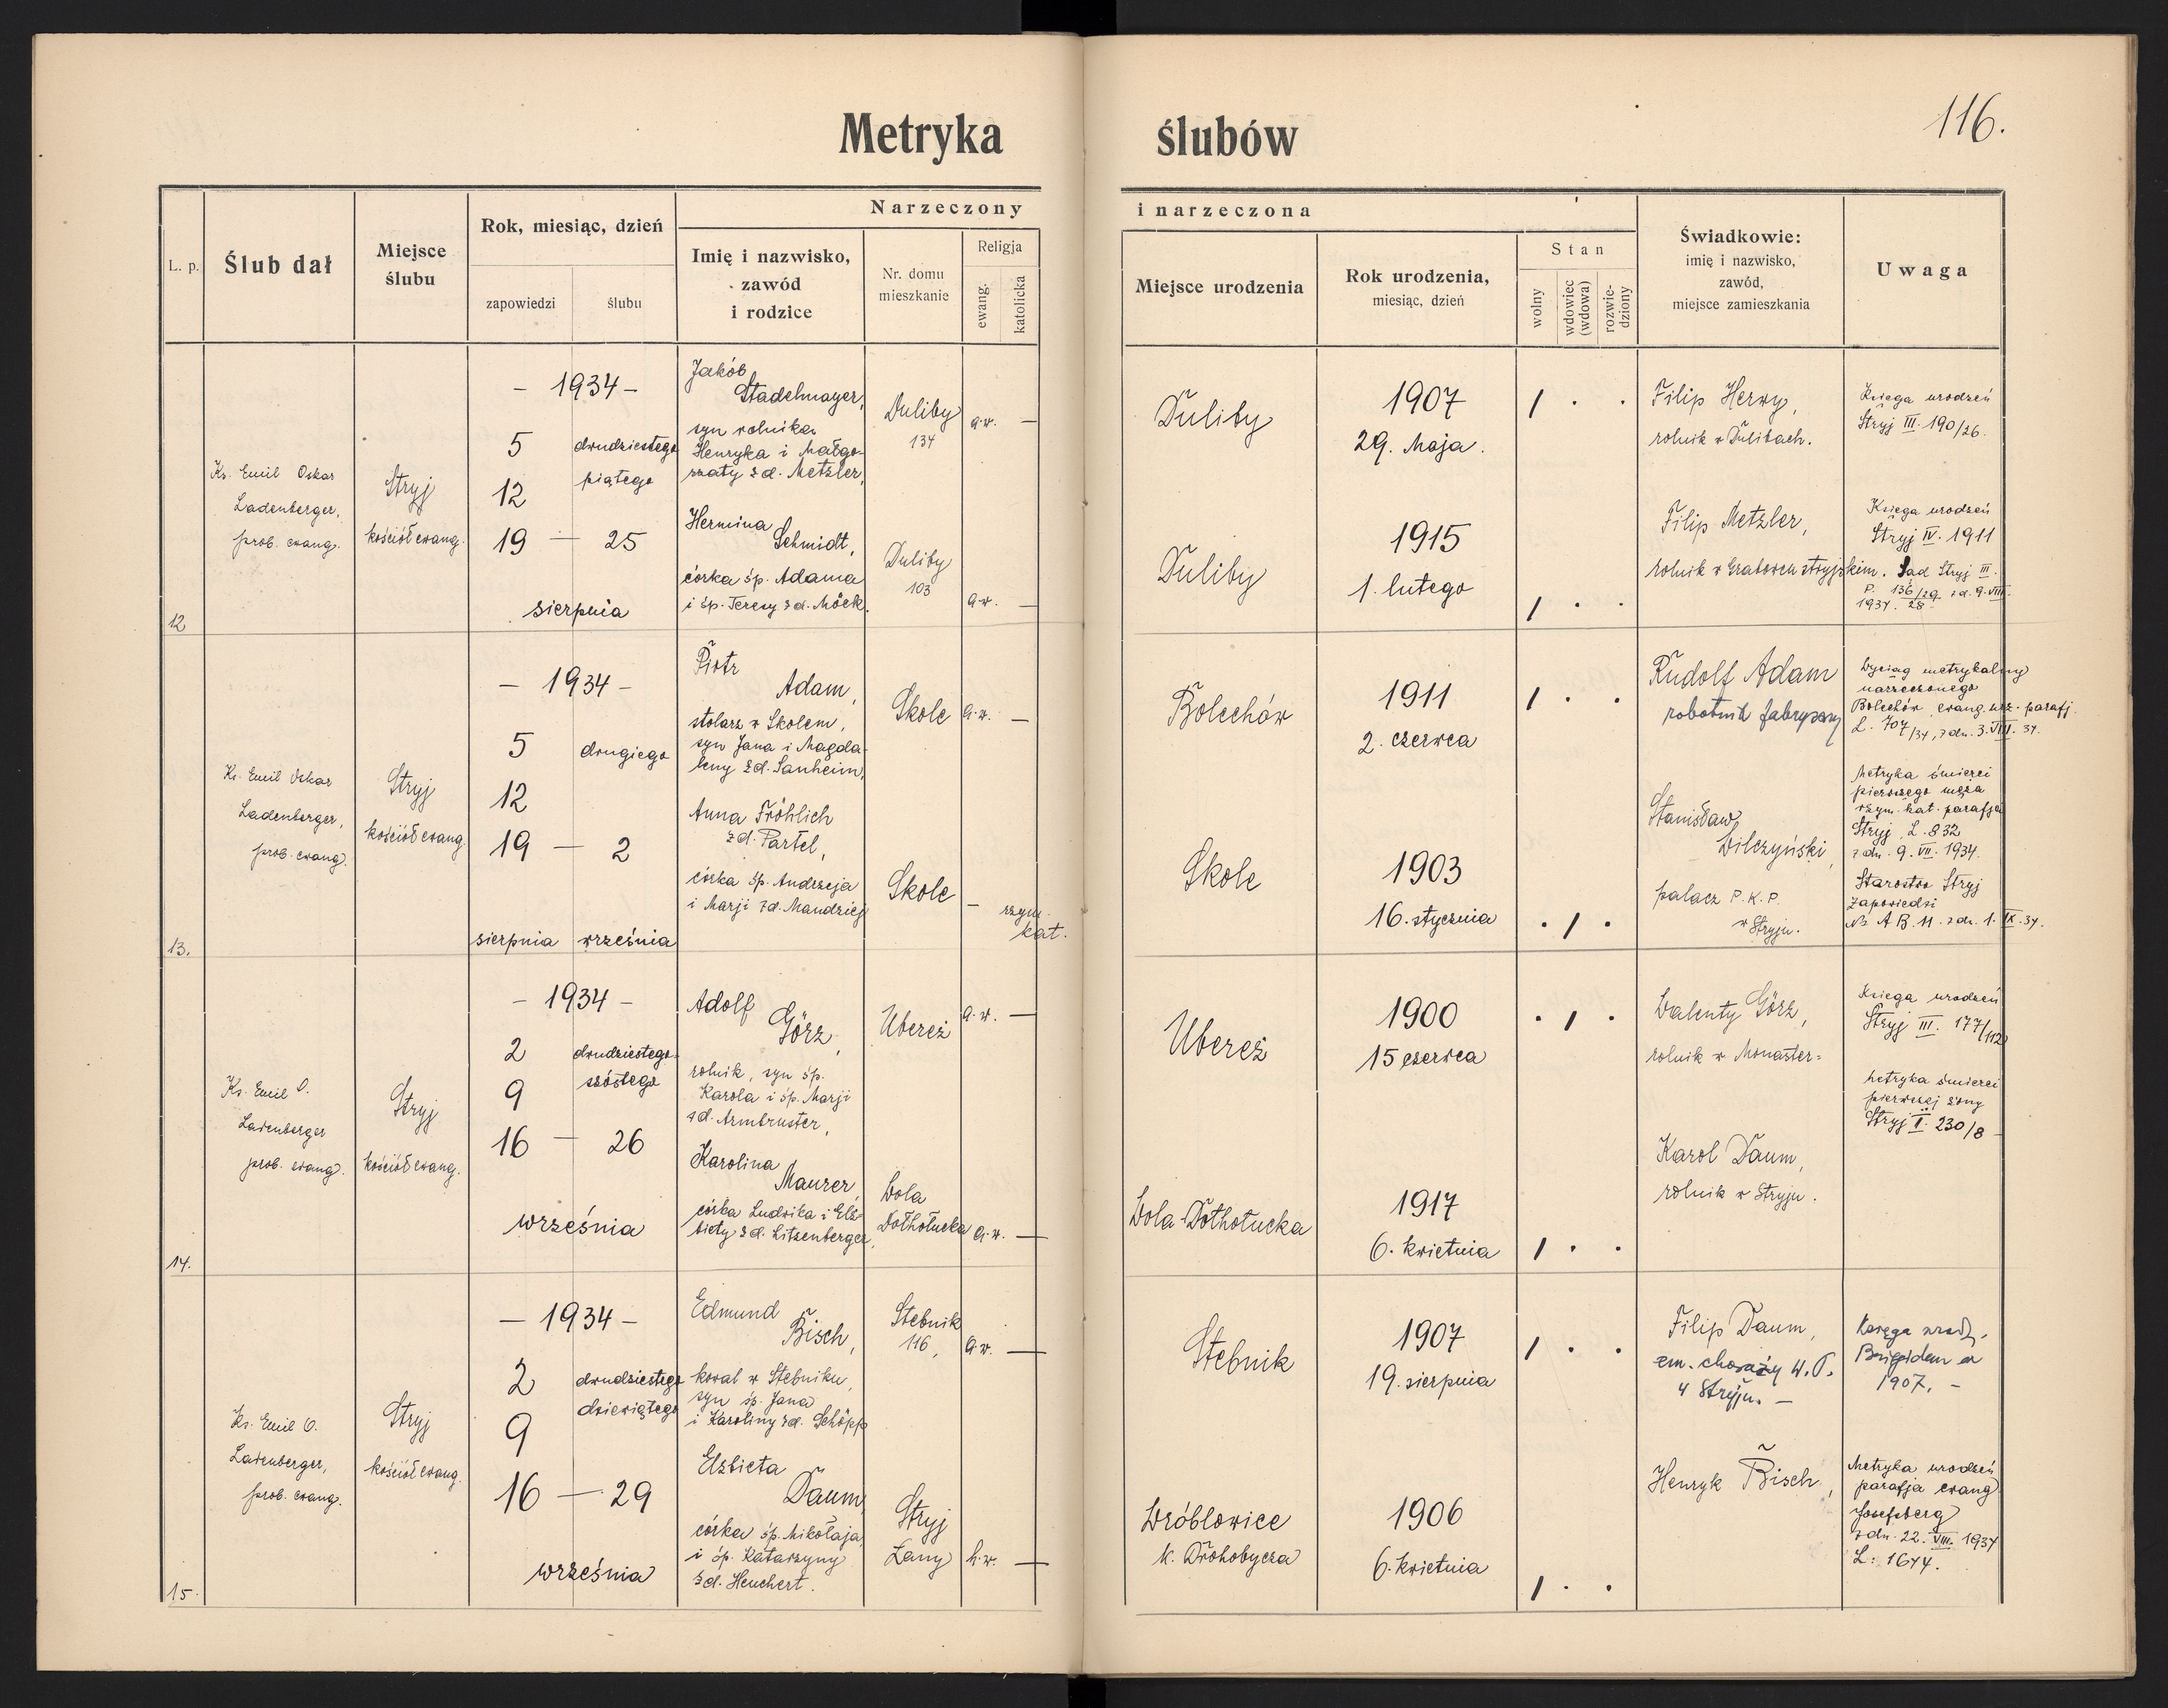 116.
Metryka ślubów
Narzeczony i narzeczona
L. p.
Ślub dał
Miejsce
ślubu
Rok, miesiąc, dzień
zapowiedzi
ślubu
Imię i nazwisko,
zawód
i rodzice
Nr. domu
mieszkanie
Religja
ewang.
katolicka
Miejsce urodzenia
Rok urodzenia,
miesiąc, dzień
Stan
wolny
wdowiec
(wdowa)
rozwie-
dziony
Świadkowie:
imię i nazwisko,
zawód,
miejsce zamieszkania
Uwaga
12
Ks. Emil Oskar
Ladenberger,
prob. ewang.
Stryj
kościół ewang.
— 1934 —
5
12
19 — 25
dwudziestego
piątego
sierpnia
Jakób
Stadelmayer,
syn rolnika
Henryka i Małgo-
rzaty z d. Metzler,
Duliby
134
a.w. —
Hermina
Schmidt,
córka śp. Adama
i śp. Teresy z d. Möck.
Duliby
103
a.w. —
Duliby
1907
29. Maja.
/ . .
Duliby
1915
1. lutego
/ . .
Filip Herwy,
rolnik w Dulibach.
Filip Metzler,
rolnik w Grabowcu stryjskim.
Księga urodzeń
Stryj III. 190/26.
Księga urodzeń
Stryj IV. 1911
Sąd Stryj III.
P. 136/29 z d. 9. VIII.
1934. 28.
13.
Ks. Emil Oskar
Ladenberger,
prob. ewang.
Stryj
kościół ewang.
— 1934 —
5
12
19 — 2
drugiego
sierpnia września
Piotr
Adam,
stolarz w Skolem,
syn Jana i Magda-
leny z d. Sanheim,
Skole
a.w. —
Anna Fröhlich
z d. Partel,
córka śp. Andrzeja
i Marji z d. Mandziej
Skole
— rzym.
kat.
Bolechów
1911
2. czerwca
/ . .
Skole
1903
16. stycznia
. / .
Rudolf Adam
robotnik fabryczny
Stanisław
Wilczyński,
palacz P.K.P.
w Stryju.
Wyciąg metrykalny
narzeczonego
Bolechów ewang. urz. parafj.
L. 707/34, z dn. 3. VIII. 34.
Metryka śmierci
pierwszego męża
rzym. kat. parafja
Stryj L. 832
z dn. 9. VII. 1934.
Starostwo Stryj
Zapowiedzi
No A B. 11. z dn. 1. IX. 34.
14.
Ks. Emil O.
Ladenberger
prob. ewang.
Stryj
kościół ewang.
— 1934 —
2
9
16 — 26
dwudziestego
szóstego
września
Adolf
Görz,
rolnik, syn śp.
Karola i śp. Marji
z d. Armbruster,
Ubereż
a.w. —
Karolina
Maurer,
córka Ludwika i Elż-
biety z d. Litzenberger,
Wola
Dołhołucka
a.w. —
Ubereż
1900
15 czerwca
. / .
Wola-Dołhołucka
1917
6. kwietnia
/ . .
Walenty Görz,
rolnik w Monaster=
Karol Daum,
rolnik w Stryju.
Księga urodzeń
Stryj III. 177/112
Metryka śmierci
pierwszej żony
Stryj II. 230/8
15.
Ks. Emil O.
Ladenberger,
prob. ewang.
Stryj
kościół ewang.
— 1934 —
2
9
16 — 29
dwudziestego
dziewiątego
września
Edmund
Bisch,
kowal w Stebniku,
syn śp. Jana
i Karoliny z d. Schöpp
Stebnik
116,
a.w. —
Elżbieta
Daum,
córka śp. Mikołaja
i śp. Katarzyny
z d. Heuchert.
Stryj
Łany
h.w. —
Stebnik
1907
19. sierpnia
/ . .
Wróblowice
k. Drohobycza
1906
6. kwietnia
/ . .
Filip Daum,
em. chorąży W.P.
w Stryju. —
Henryk Bisch,
Księga urodz.
Brigidau
1907. —
Metryka urodzeń
parafja ewang.
Josefsberg
z dn. 22. VIII. 1934
L: 1644.